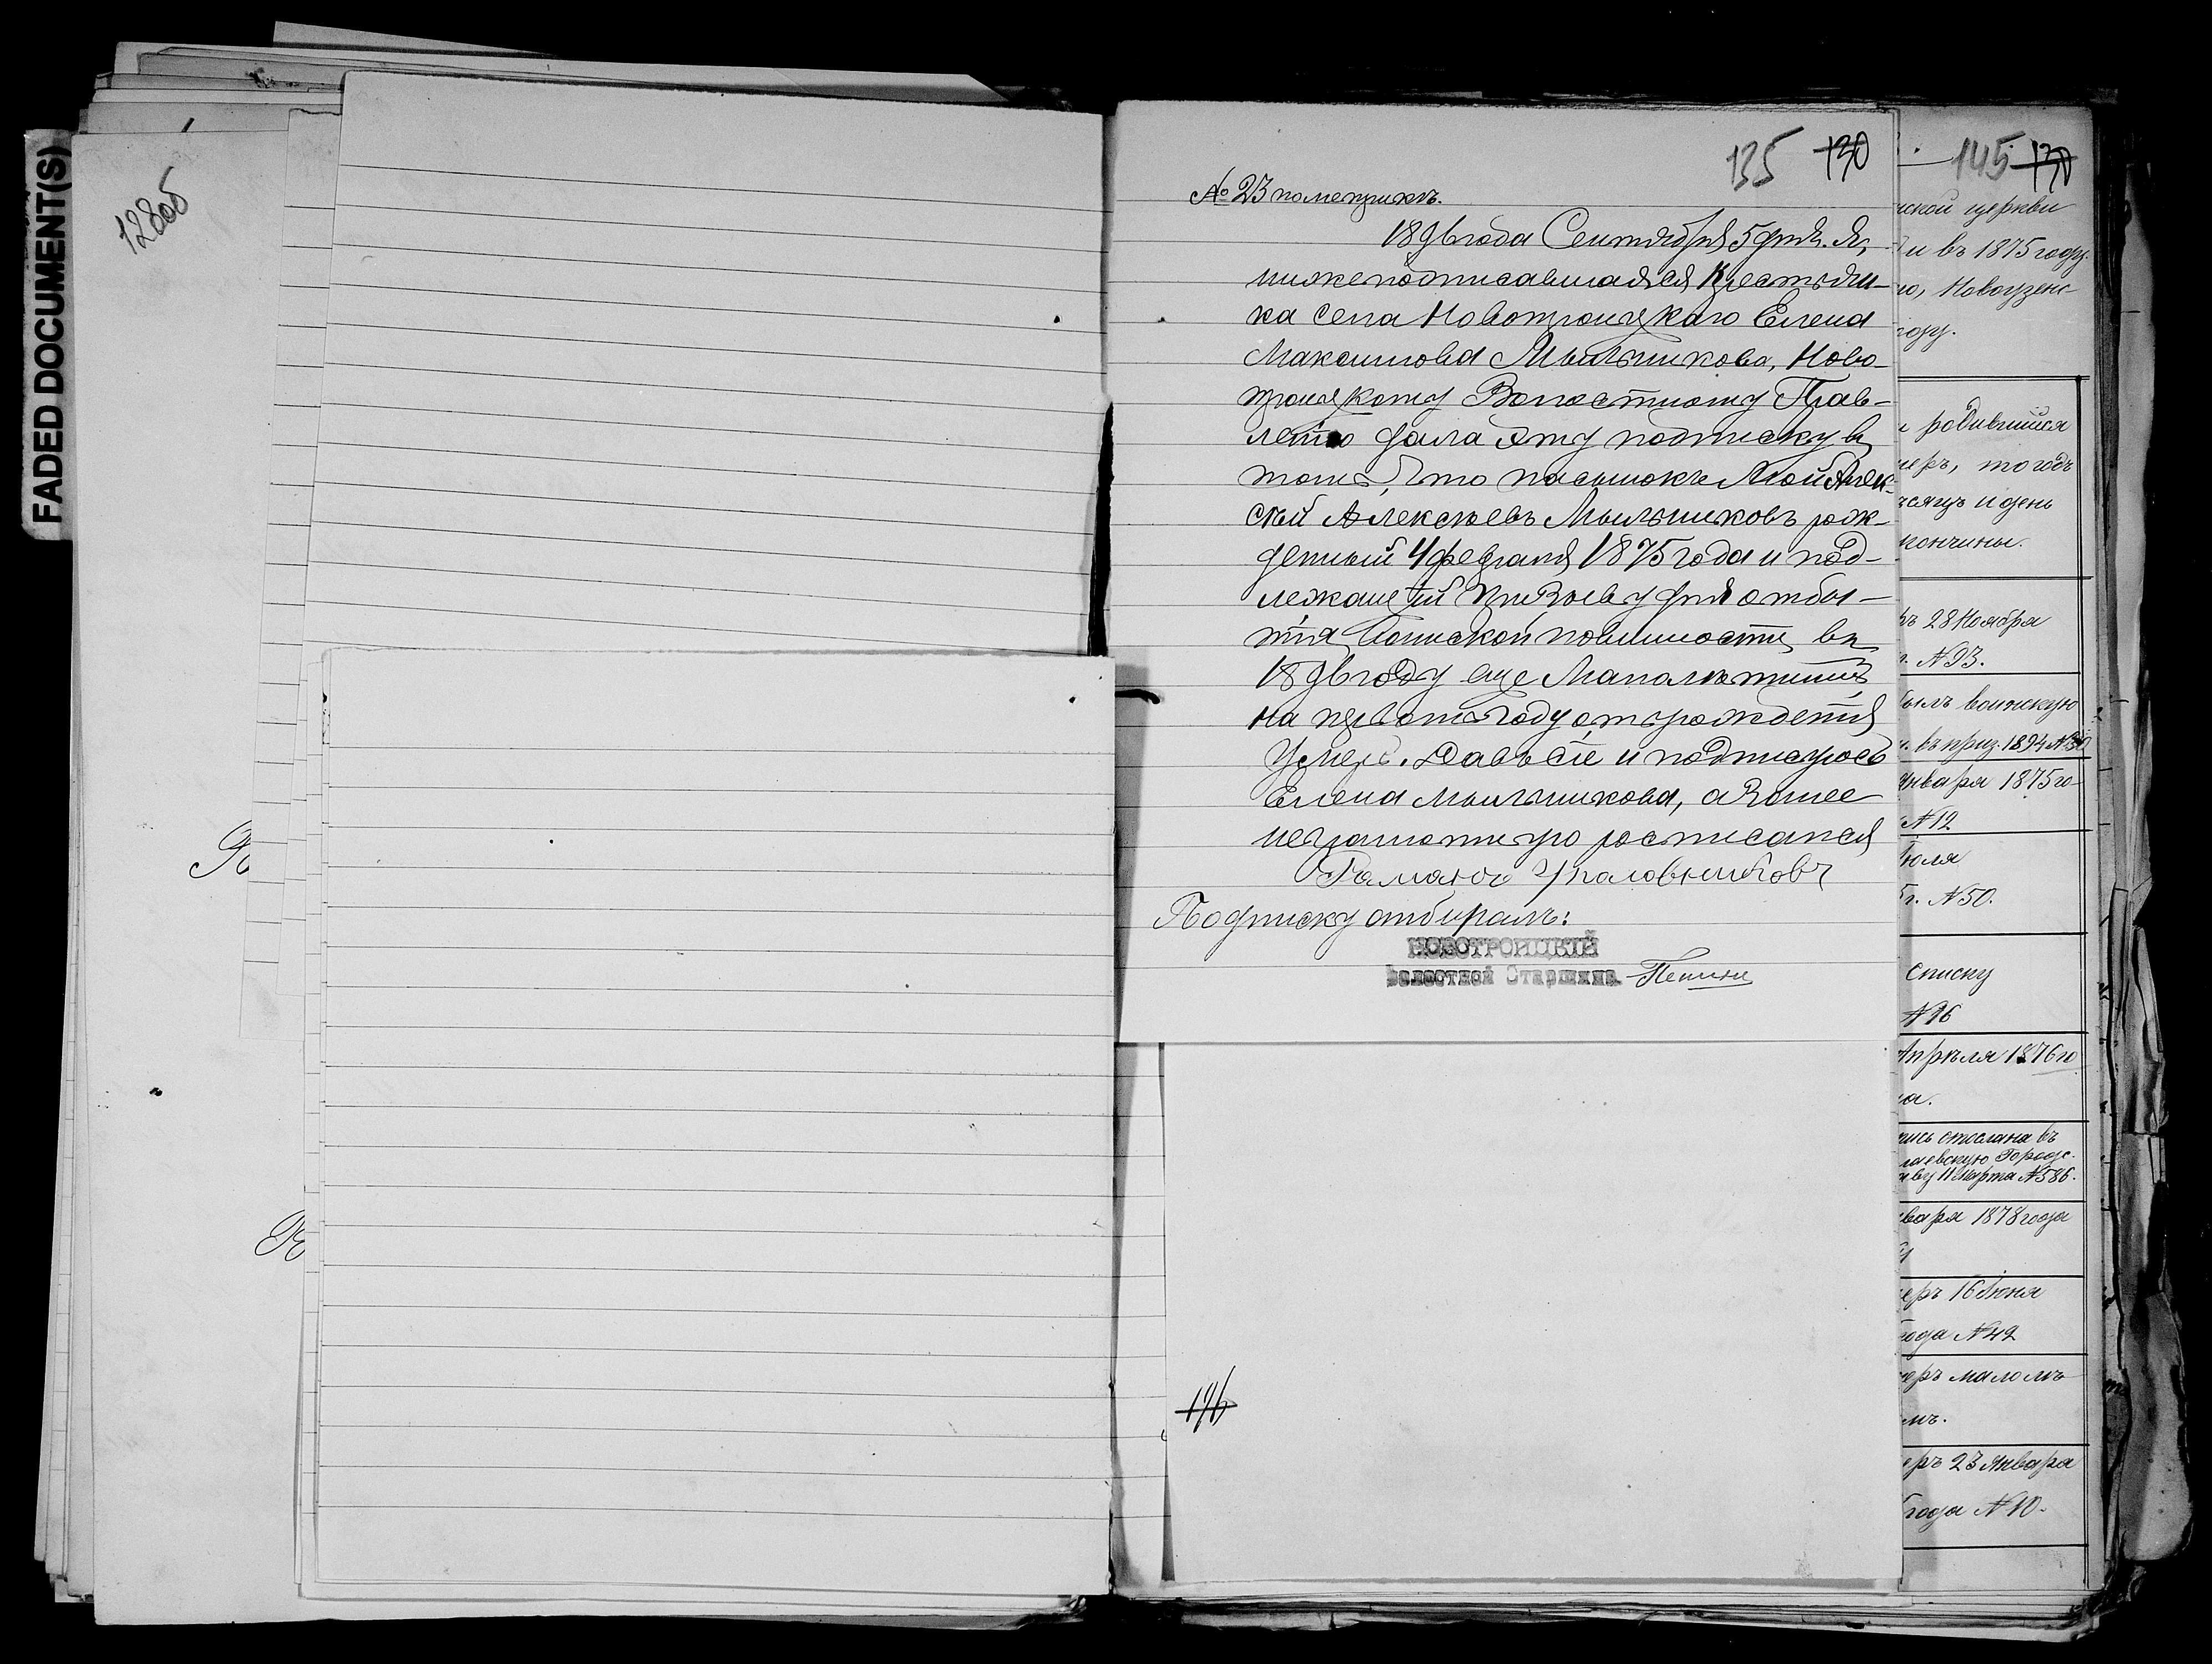 FADED DOCUMENT(S)
12805
135 130
№ 23 по метрикѣ.
1896 года Сентября 5 дня. Я,
нижеподписавшаяся Крестьян-
ка села Новотроицкаго Елена
Максимова Мыльникова, Ново-
троицкому Волостному Прав-
ленію дала эту подписку въ
томъ, что пасынокъ Мой Алек-
сѣй Алексѣевъ Мыльниковъ рож-
денный 4 февраля 1875 года и под-
лежащій призыву для отбы-
тія Воинской повинности въ
1896 году еще Малолѣтнимъ
на первомъ году отъ рожденія
умеръ. Въ
и подписуюсь
Елена Мыльникова, а за нее
неграмотную росписался
Подписку отбиралъ:
НОВОТРОИЦКІЙ
Волостной Старшина
176
145 130
ской церкви
и въ 1875 году
ю, Новоузенс-
году.
и родившійся
меръ, то годъ
мѣсяцъ и день
кончины.
ръ 28 Ноября
г. №93.
былъ воинскую
п. въ приз. 1894 №
января 1875 го-
№12
Іюля
5 г. №50.
списку
№16
Апрѣля 1876 го
на.
пись отослана въ
лаевскую Городс.
аву 11 марта №586.
нваря 1878 года
меръ 16 Іюня
года №42
меръ малолѣ
мъ.
меръ 23 Января
года №10.